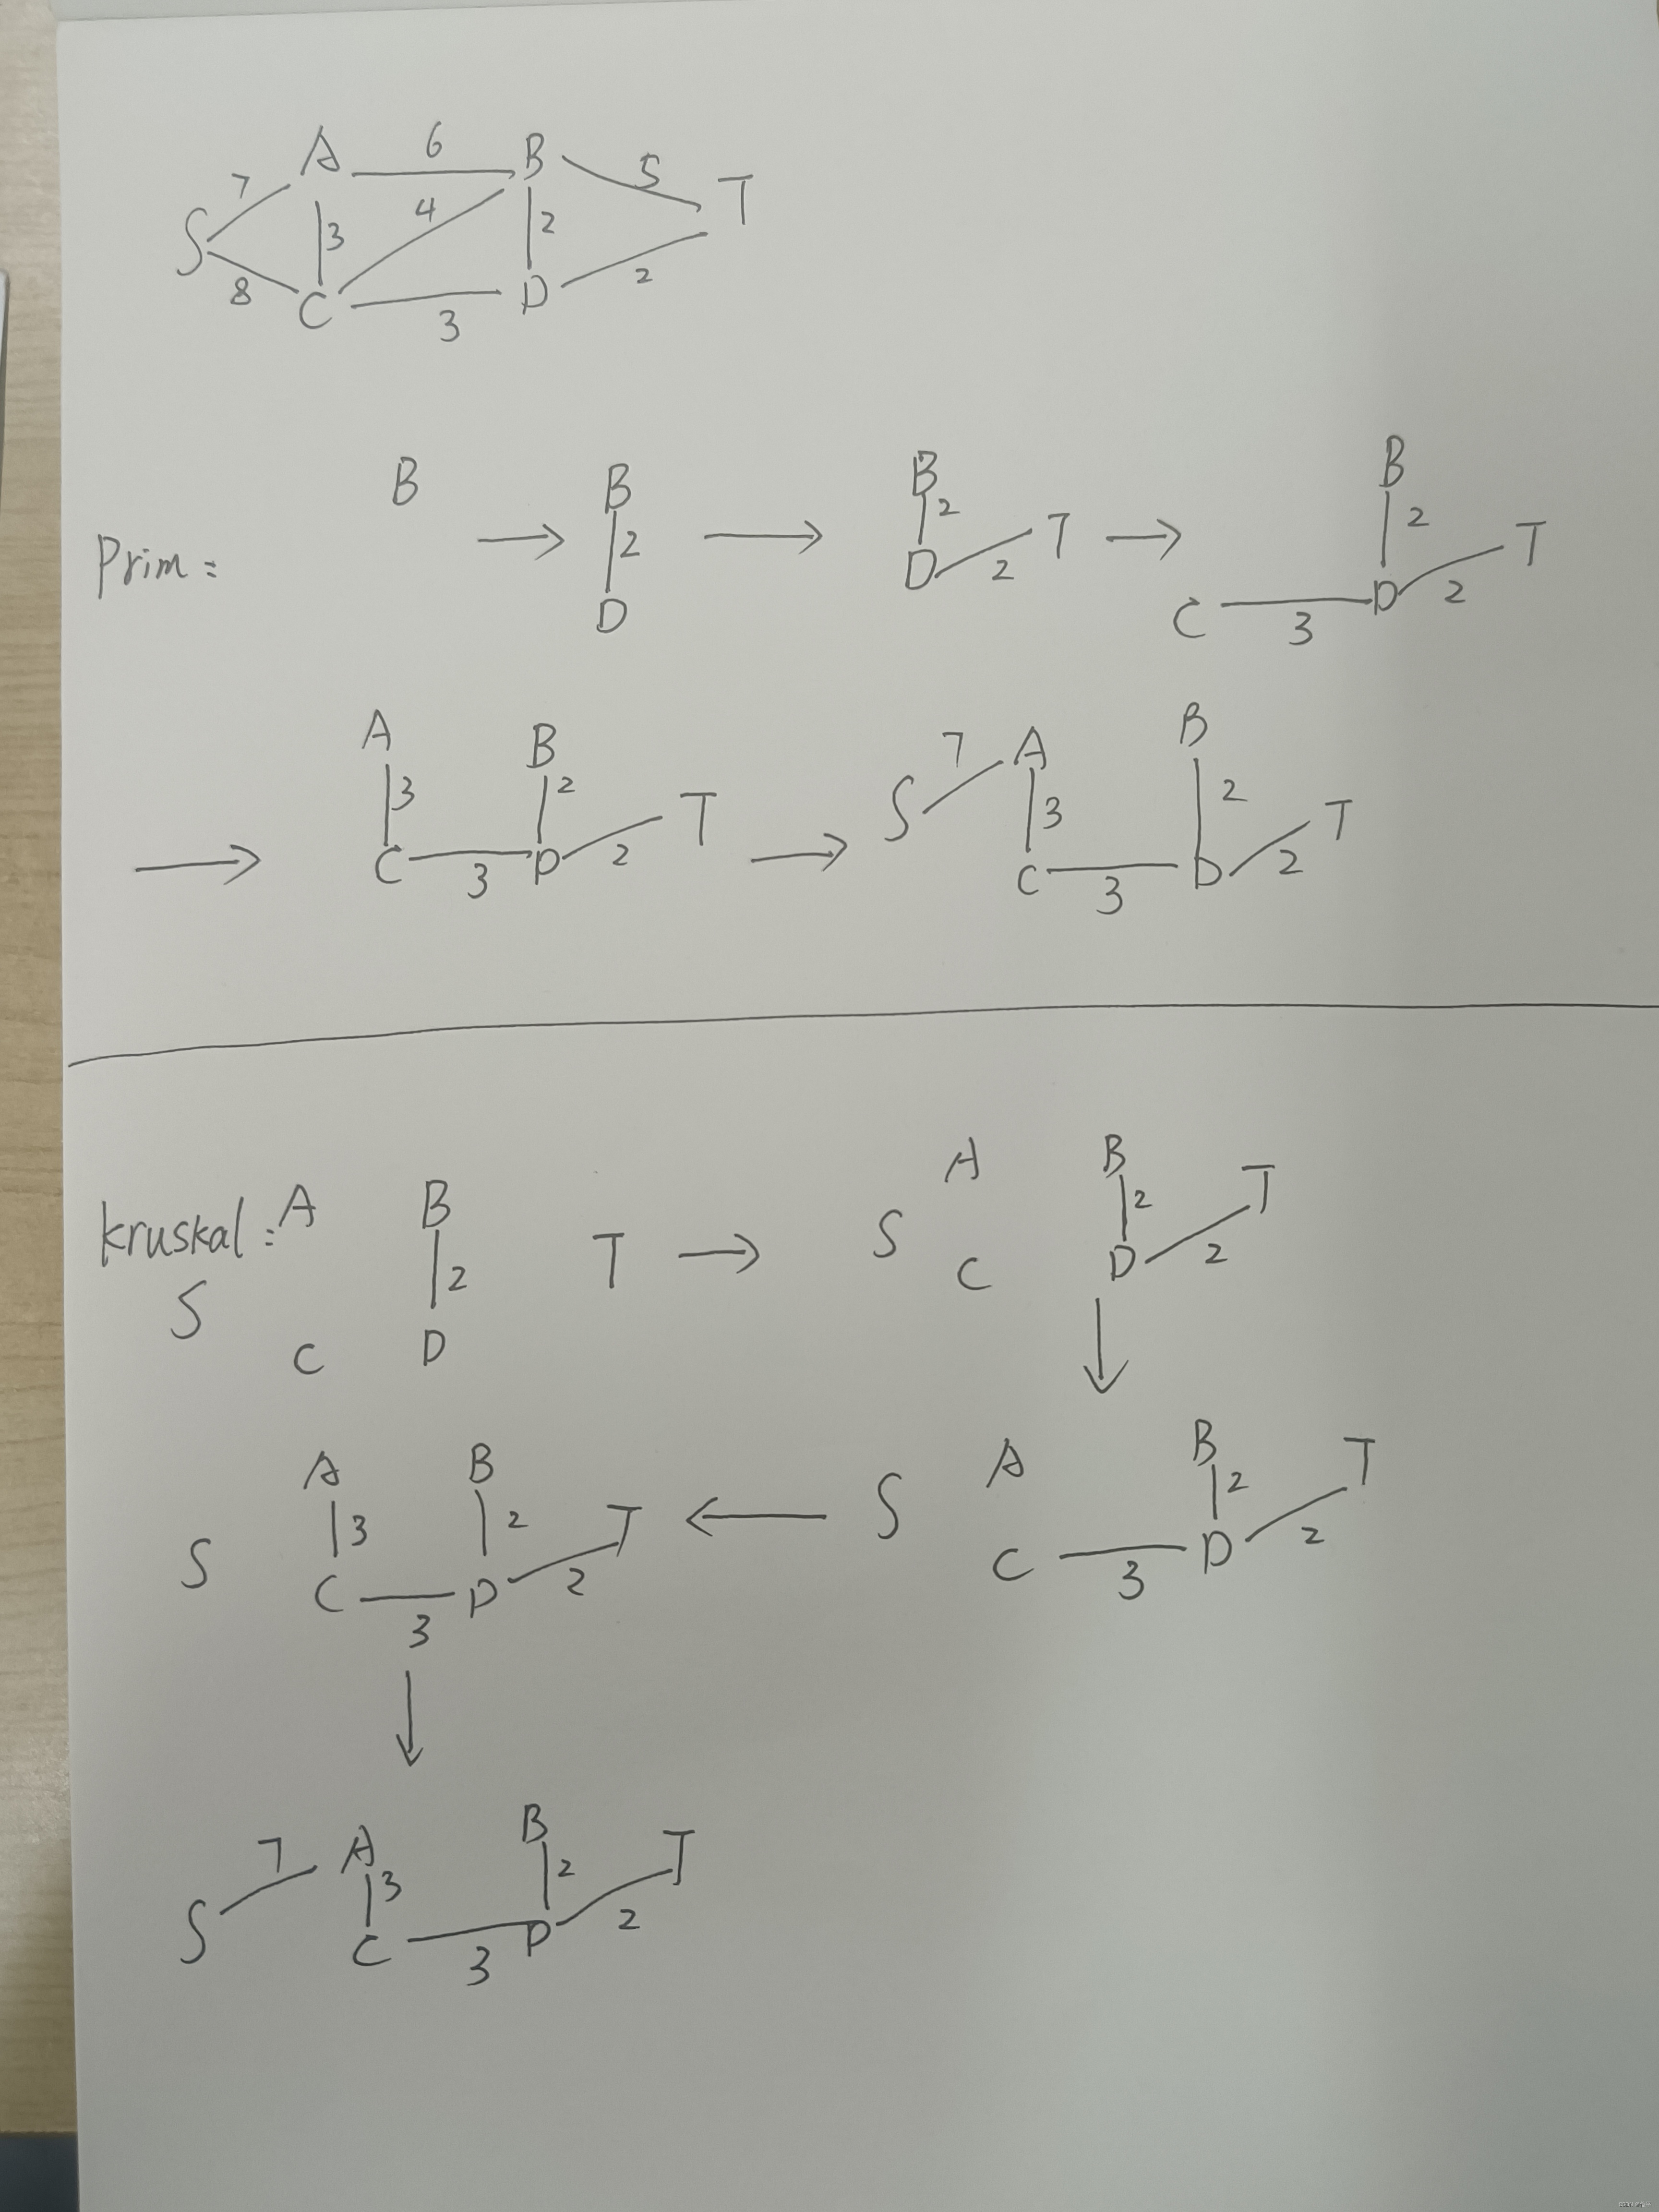 A 6 B 5 T
7 4
S 3 2
8 C 3 D 2
B B B B
Prim: 2 2 T 2 T
D D 2 C 3 D 2
A B 7 A B
3 2 T S 3 2 T
C 3 D 2 C 3 D 2
kruskal: A B T A B T
S 2 S 2
C D C D 2
A B T A B T
S 3 2 S 2
C 3 D 2 C 3 D 2
7 A B T
S 3 2
C 3 D 2